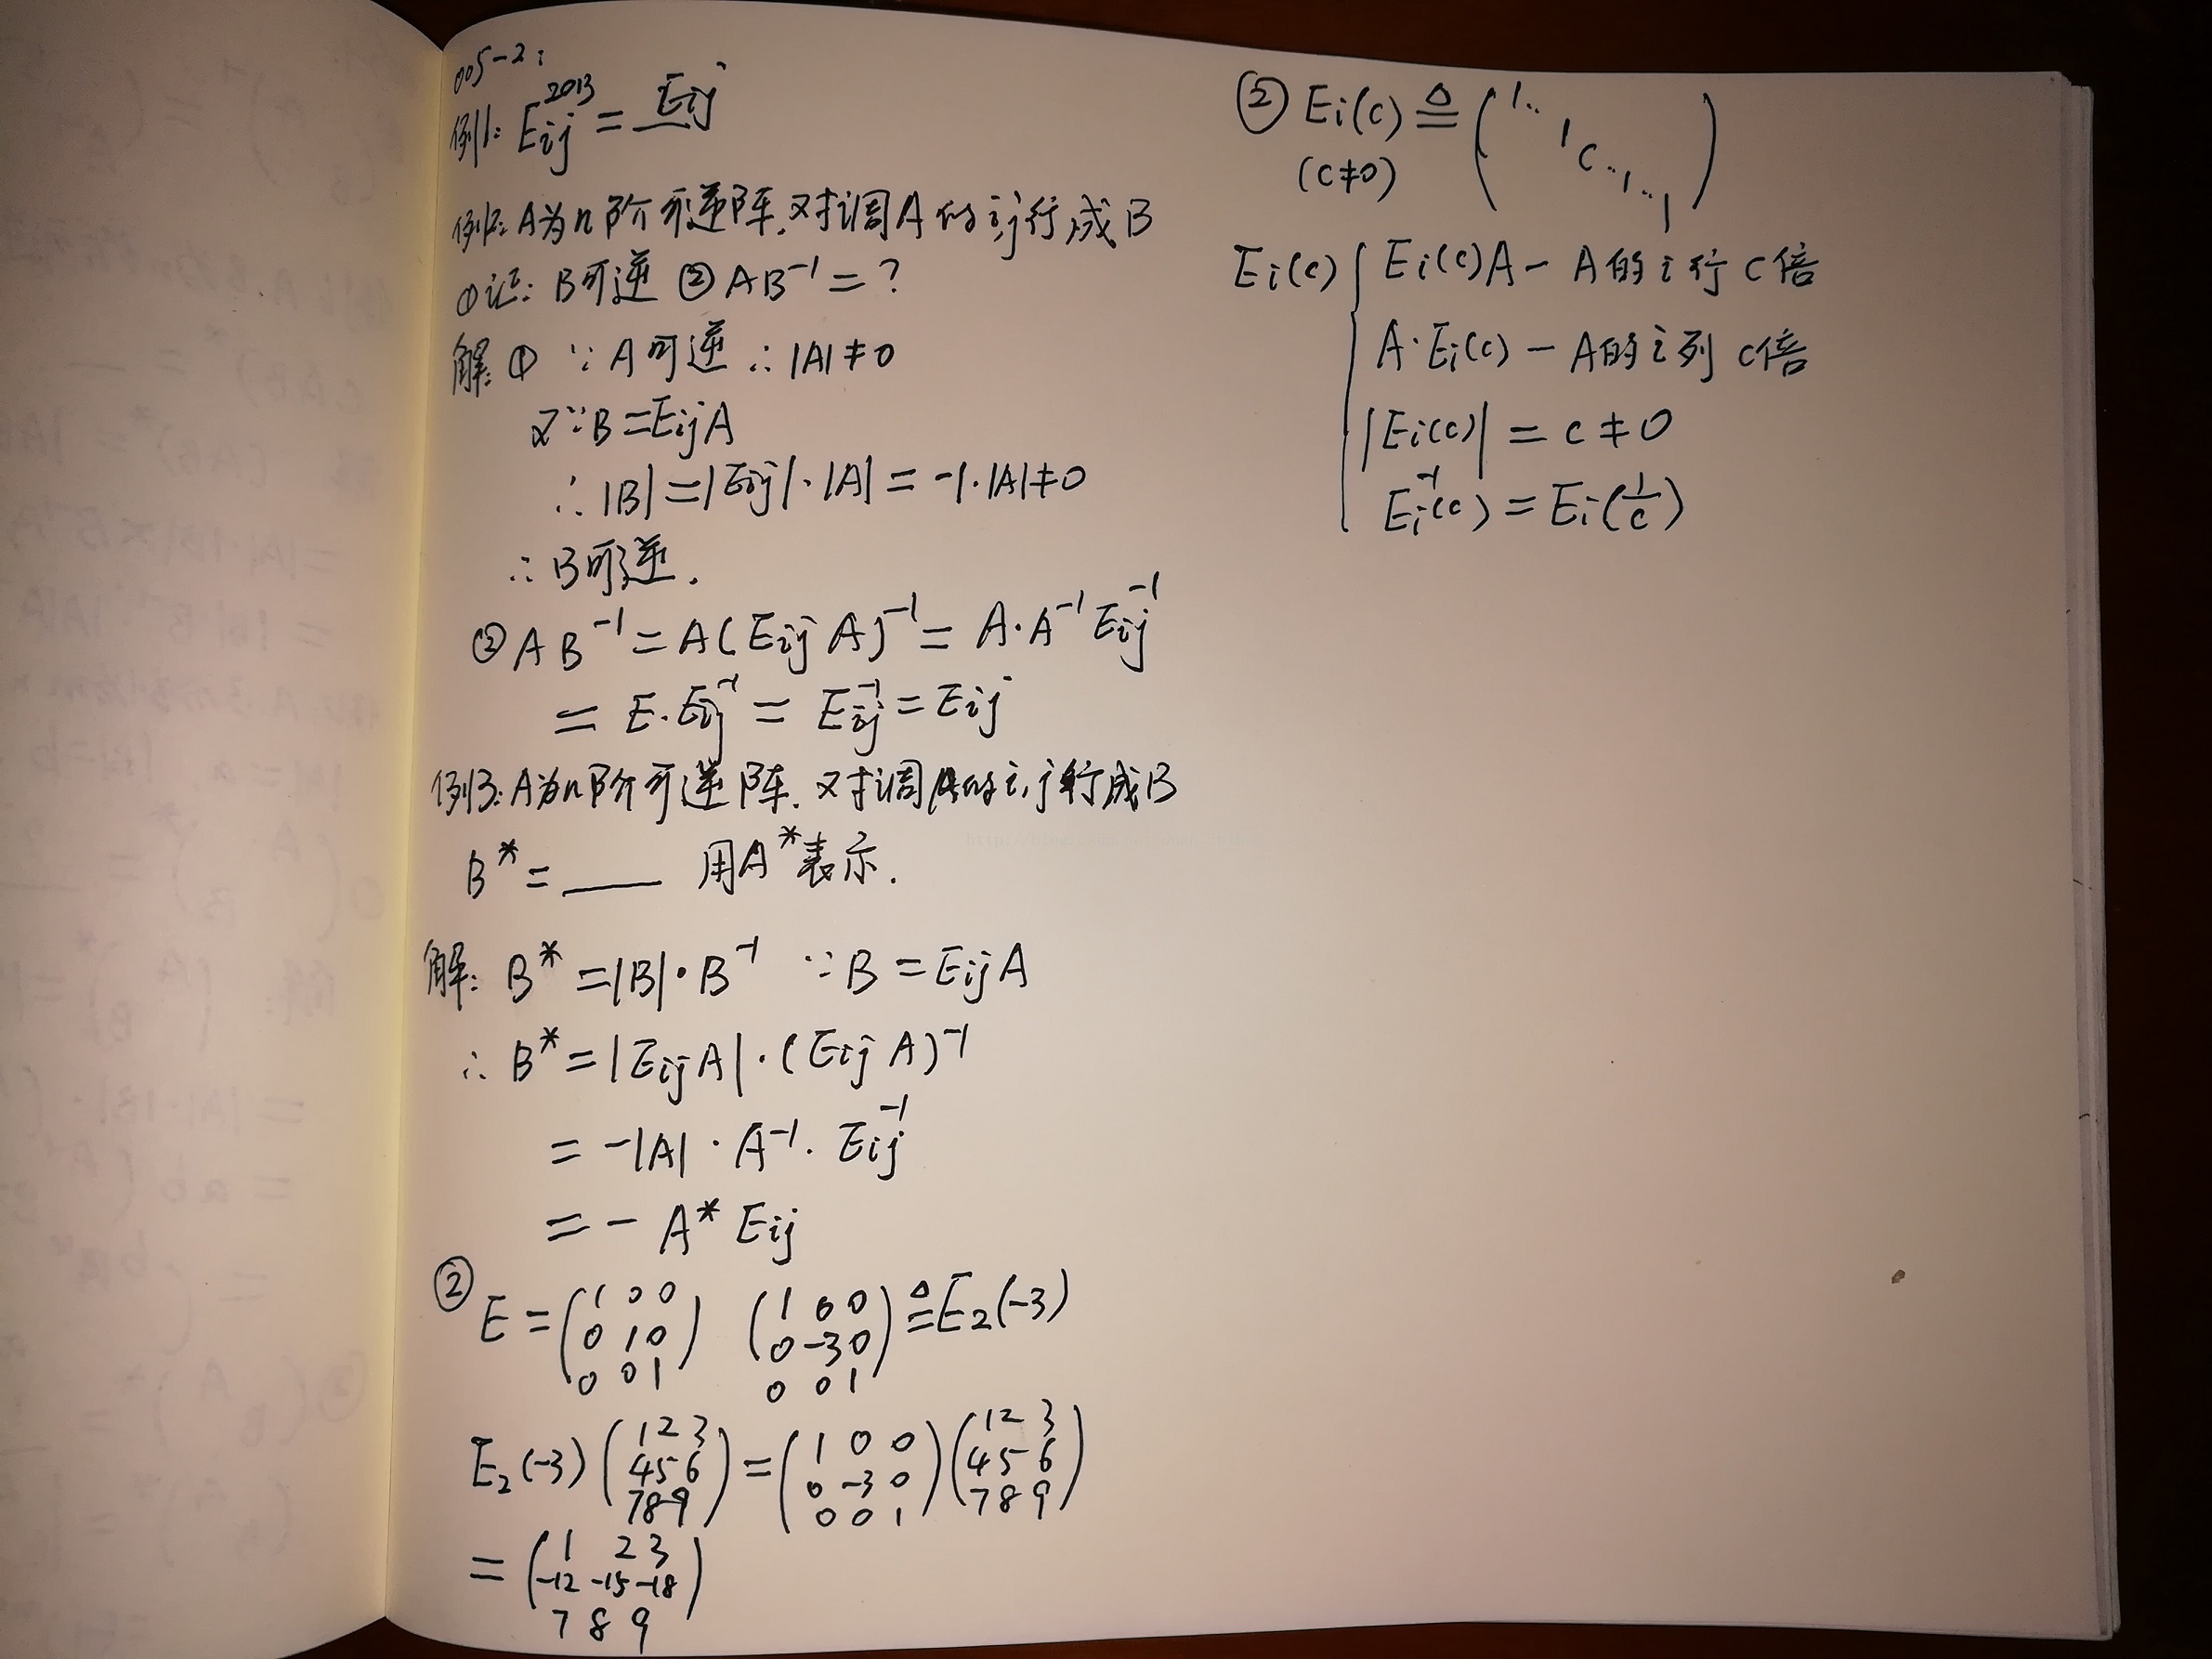 005-2:
例1: Eij^2013 = Eij
例2: A为n阶可逆阵, 对调A的i,j行成B
①证: B可逆 ②AB^-1 = ?
解: ① ∵ A可逆 ∴ |A| ≠ 0
又∵B = EijA
∴ |B| = |Eij|·|A| = -1·|A| ≠ 0
∴ B可逆.
② AB^-1 = A(Eij A)^-1 = A·A^-1 Eij^-1
= E·Eij^-1 = Eij^-1 = Eij
例3: A为n阶可逆阵, 对调A的i,j行成B
B* = ____ 用A*表示.
解: B* = |B|·B^-1 ∵B = EijA
∴ B* = |EijA|·(Eij A)^-1
= -|A|·A^-1·Eij^-1
= - A* Eij
② E = (1 0 0
0 1 0
0 0 1) (1 0 0
0 -3 0
0 0 1) ≜ E2(-3)
E2(-3) (1 2 3
4 5 6
7 8 9) = (1 0 0
0 -3 0
0 0 1) (1 2 3
4 5 6
7 8 9)
= (1 2 3
-12 -15 -18
7 8 9)
② Ei(c) ≜ (1 ·· 1 c ·· 1 ·· 1)
(c≠0)
Ei(c) { Ei(c)A - A的i行c倍
A·Ei(c) - A的i列c倍
|Ei(c)| = c ≠ 0
Ei^-1(c) = Ei(1/c)